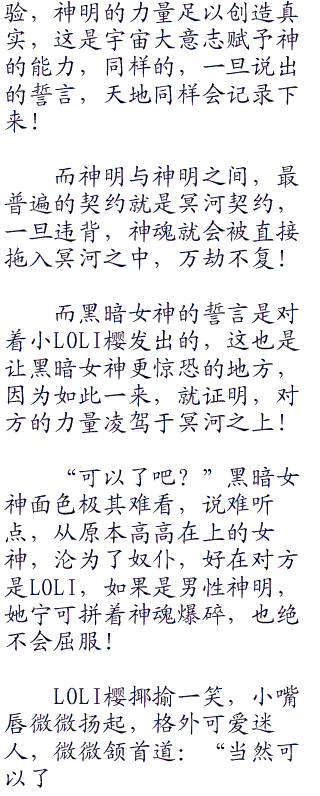 验，神明的力量足以创造真
实，这是宇宙大意志赋予神
的能力，同样的，一旦说出
的誓言，天地同样会记录下
来！
而神明与神明之间，最
普遍的契约就是冥河契约，
一旦违背，神魂就会被直接
拖入冥河之中，万劫不复！
而黑暗女神的誓言是对
着小LOLI樱发出的，这也是
让黑暗女神更惊恐的地方，
因为如此一来，就证明，对
方的力量凌驾于冥河之上！
“可以了吧？”黑暗女
神面色极其难看，说难听
点，从原本高高在上的女
神，沦为了奴仆，好在对方
是LOLI，如果是男性神明，
她宁可拼着神魂爆碎，也绝
不会屈服！
LOLI樱揶揄一笑，小嘴
唇微微扬起，格外可爱迷
人，微微颔首道：“当然可
以了